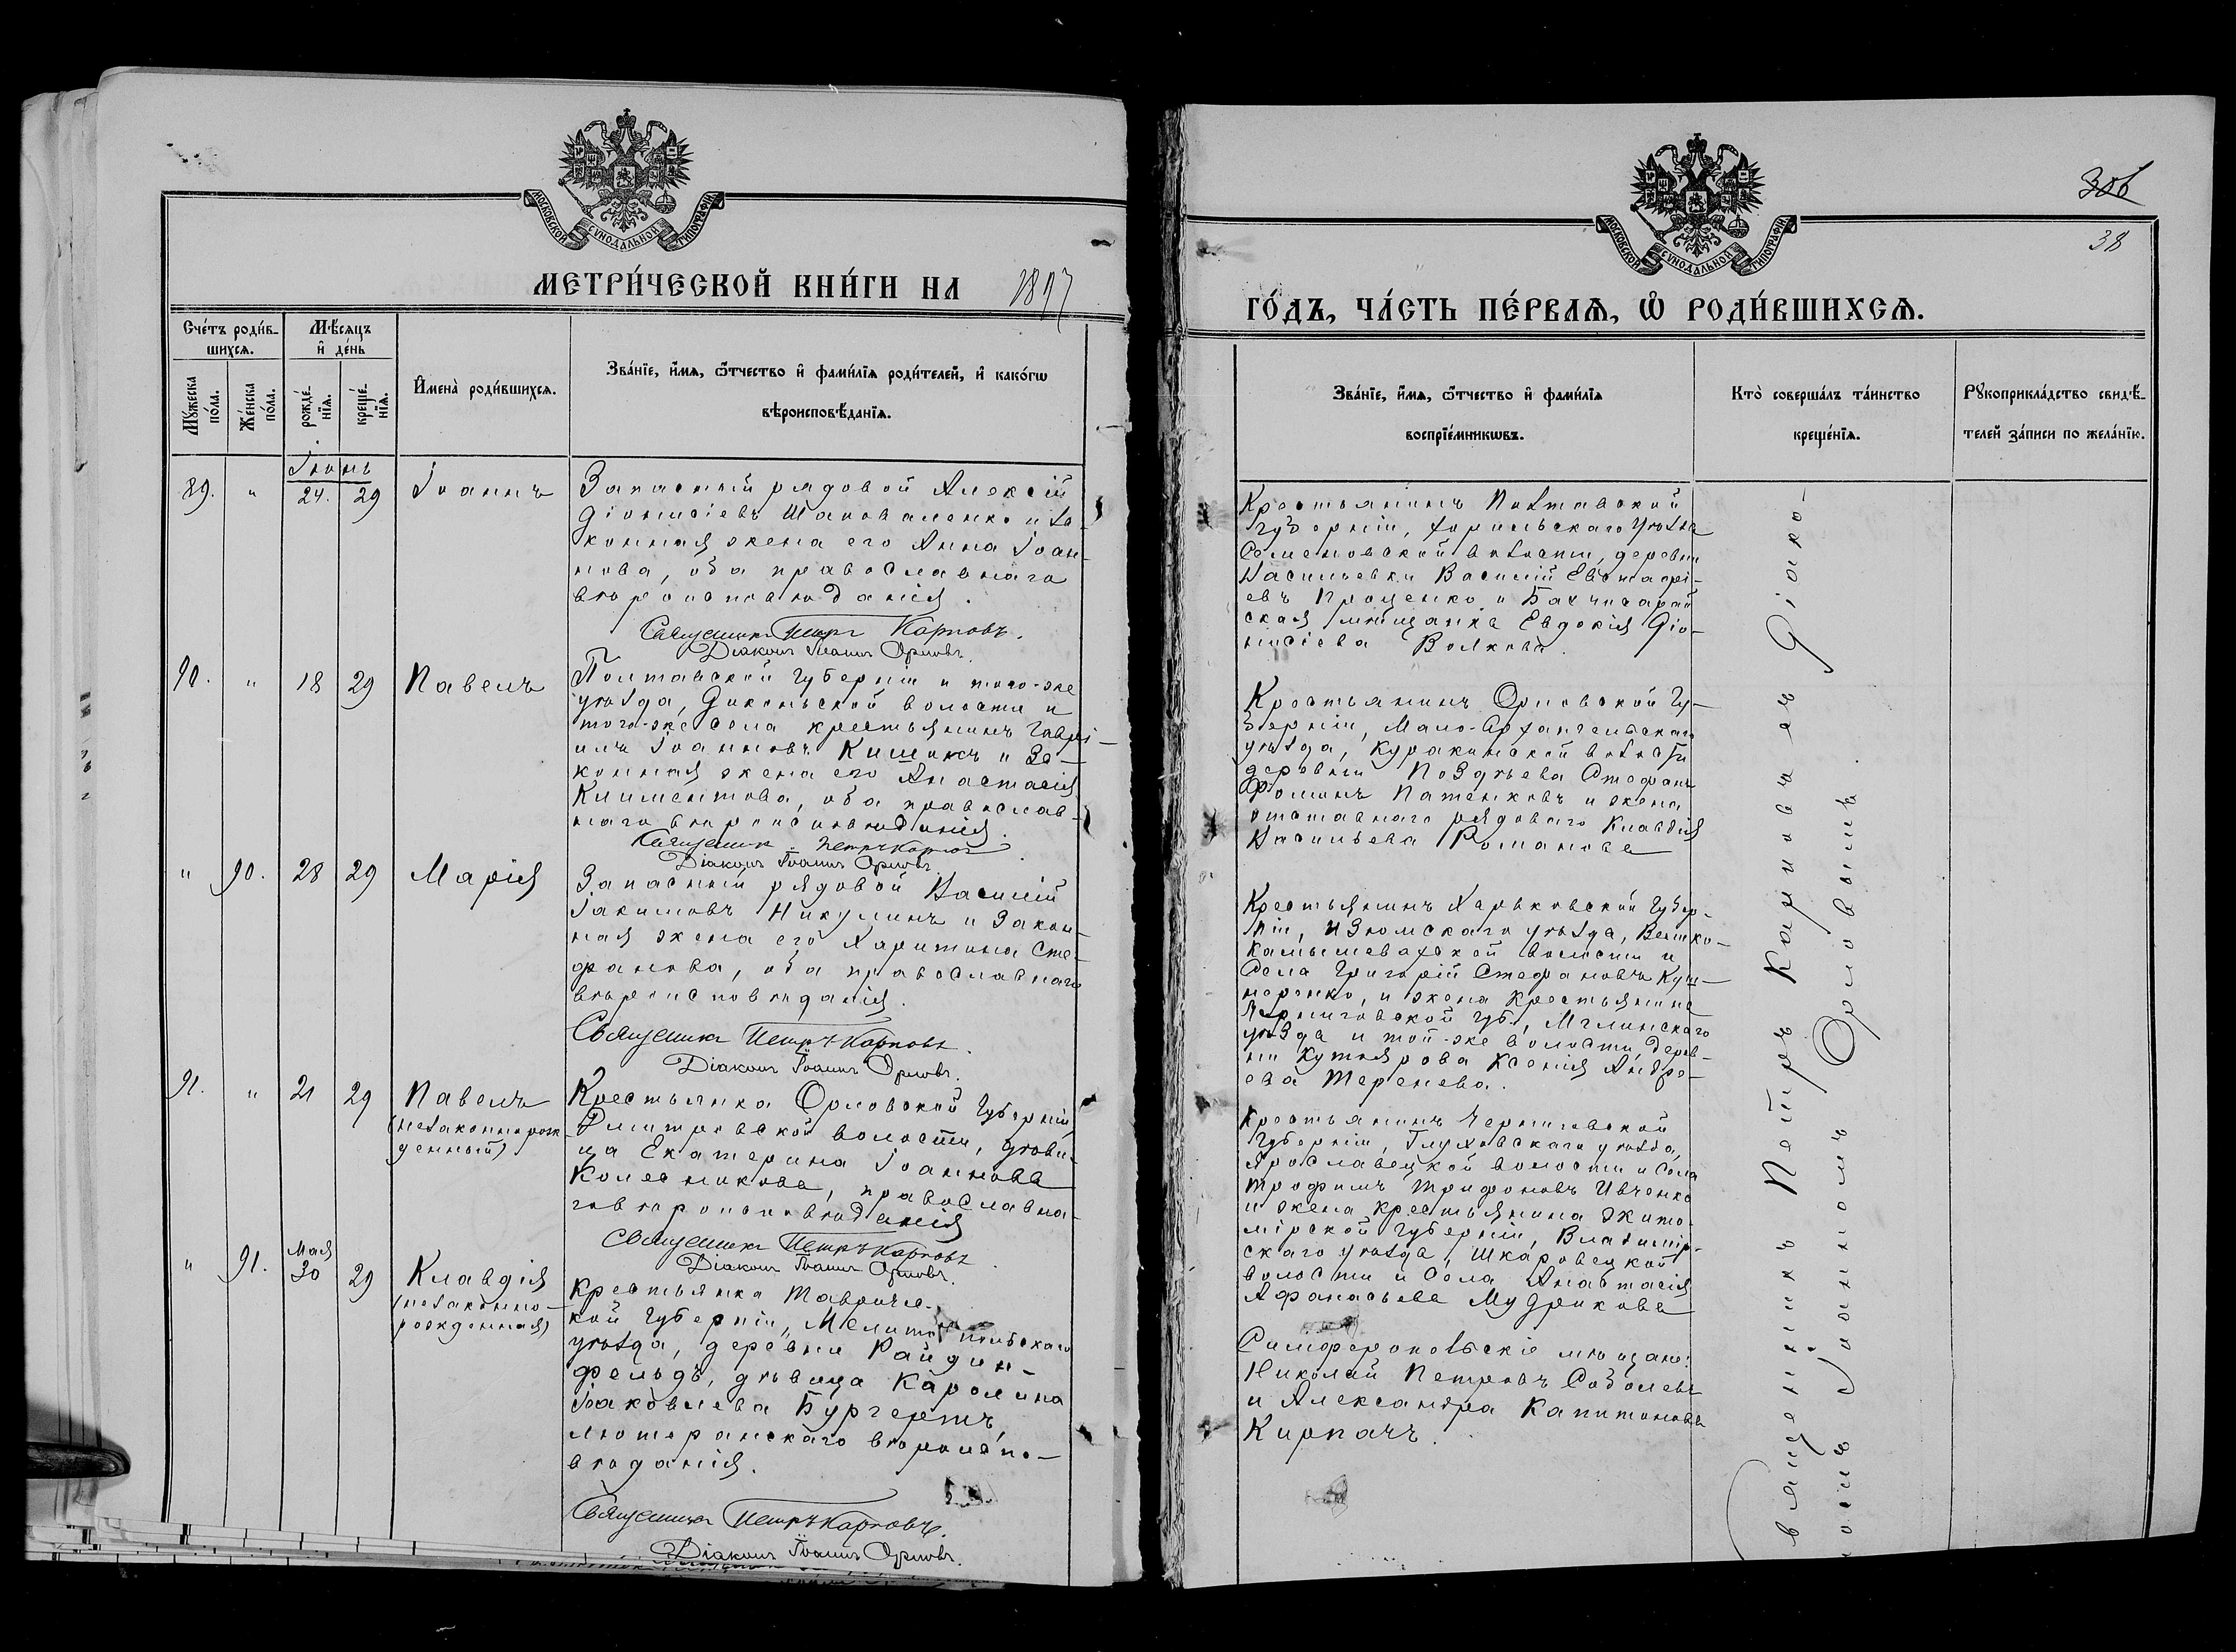 МОСКОВСКОЙ СУНОДАЛЬНОЙ ТИПОГРАФІИ
МЕТРИ́ЧЕСКОЙ КНИ́ГИ НА 1897
Сче́тъ роди́в-
шихся.
Мѣ́сяцъ
и҆ де́нь
Му́жеска
по́ла.
Же́нска
по́ла.
рожде́-
нїѧ.
креще́-
нїѧ.
И҆мена̀ роди́вшихсѧ.
Зва́нїе, и҆́мѧ, ѻ҆́тчество и҆ фами́лїѧ роди́телей, и҆ како́гѡ
вѣроисповѣ́данїѧ.
Іюнь
89. " 24. 29 Іоаннъ
Запасный рядовой Алексій
Діонисіевъ Шаповаленко и за-
конная жена его Анна Іоан-
нова, оба православнаго
вѣроисповѣданія.
Священникъ Петръ Карповъ.
Діаконъ Іоаннъ Орловъ.
90. " 18 29 Павелъ
Полтавской губерніи и того-же
уѣзда, Диканьской волости и
того-же села крестьянинъ Гаврі-
илъ Іоанновъ Кишикъ и за-
конная жена его Анастасія
Климентова, оба православ-
наго вѣроисповѣданія.
Священникъ Петръ Карповъ
Діаконъ Іоаннъ Орловъ.
" 90. 28 29 Марія
Запасный рядовой Василій
Іакимовъ Никулинъ и закон-
ная жена его Харитина Сте-
фанова, оба православнаго
вѣроисповѣданія.
Священникъ Петръ Карповъ.
Діаконъ Іоаннъ Орловъ.
91. " 21 29 Павелъ
(незаконнорож-
денный)
Крестьянка Орловской губерніи
Дмитровской волости, дѣви-
ца Екатерина Іоаннова
Колесникова, православна-
го вѣроисповѣданія
Священникъ Петръ Карповъ.
Діаконъ Іоаннъ Орловъ.
Мая
" 91. 30 29 Клавдія
(незаконно-
рожденная)
Крестьянка Тавричес-
кой губерніи, Мелитопольскаго
уѣзда, деревни Райдин-
фельдъ, дѣвица Каролина
Іаковлева Бургертъ,
лютеранскаго вѣроиспо-
вѣданія.
Священникъ Петръ Карповъ.
Діаконъ Іоаннъ Орловъ.
МОСКОВСКОЙ СУНОДАЛЬНОЙ ТИПОГРАФІИ
38
ГО́ДЪ, ЧА́СТЬ ПЕ́РВАѦ, Ѽ РОДИ́ВШИХСѦ.
Зва́нїе, и҆́мѧ, ѻ҆́тчество и҆ фами́лїѧ
воспрїе́мникѡвъ.
Кто̀ соверша́лъ та́инство
креще́нїѧ.
Рꙋкоприкла́дство свидѣ́-
телей за́писи по жела́нїю.
Крестьянинъ Полтавской
губерніи, Хорольскаго уѣзда
Семеновской волости, деревни
Васильевки Василій Евстафі-
евъ Проценко и Бахчисарай
ская мѣщанка Евдокія Діо-
нисіева Волкова.
Крестьянинъ Орловской гу-
берніи, Мало-Архангельскаго
уѣзда, Куракинской волости
деревни Поздѣева Стефанъ
Фоминъ Патенковъ и жена
отставнаго рядоваго Клавдія
Васильева Романова
Крестьянинъ Харьковской губер-
ніи, Изюмскаго уѣзда, Велико-
камышевахской волости и
села Григорій Стефановъ Куш-
наренко, и жена крестьянина
Черниговской губ., Мглинскаго
уѣзда и той-же волости, дерев-
ни Кутнярова Ксенія Андре-
ева Теренева.
Крестьянинъ Черниговской
губерніи, Глуховскаго уѣзда,
Ярославецкой волости и села
Трофимъ Трифоновъ Ивченко
и жена крестьянина Жито-
мірской губерніи, Владимір-
скаго уѣзда, Шкаровецкой
волости и села Анастасія
Афанасьева Мудрикова
Симферопольскіе мѣщане:
Николай Петровъ Соболевъ
и Александра Капитонова
Кирпачъ.
Священникъ Петръ Карповъ съ Діако-
номъ Іоанномъ Орловымъ.